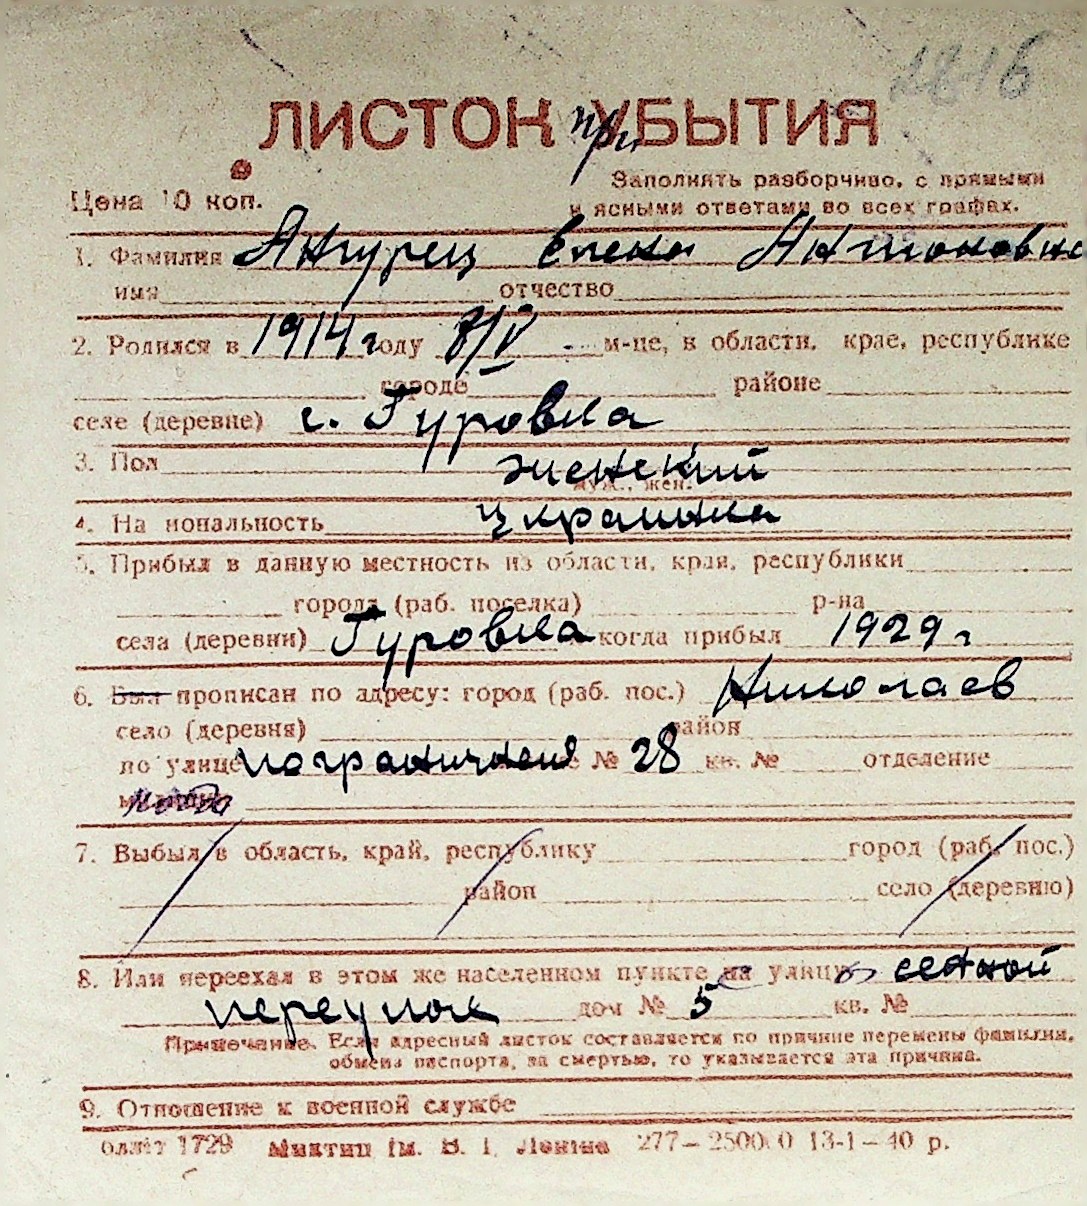 2816
ЛИСТОК при УБЫТИЯ
Цена 10 коп.
Заполнять разборчиво, с прямыми
и ясными ответами во всех графах.
1. Фамилия Янгурец Елена Антоновна
имя отчество
2. Родился в 1914 году 8/V м-це, в области, крае, республике
городе районе
селе (деревне) с. Гуровка
3. Пол женский
муж., жен.
4. На иональность украинка
5. Прибыл в данную местность из области, края, республики
города (раб. поселка) р-на
села (деревни) Гуровка когда прибыл 1929 г
6. Был прописан по адресу: город (раб. пос.) Николаев
село (деревня) район
по улице пограничная № 28 кв. № отделение
7. Выбыл в область, край, республику город (раб. пос.)
район село (деревню)
8. Или переехал в этом же населенном пункте на улицу сенной
переулок дом № 5 кв. №
Примечание. Если адресный листок составляется по причине перемены фамилии,
обмена паспорта, за смертью, то указывается эта причина.
9. Отношение к военной службе
олліт 1729 Миктип ім. В. І. Леніна 277—250000 13-1—40 р.